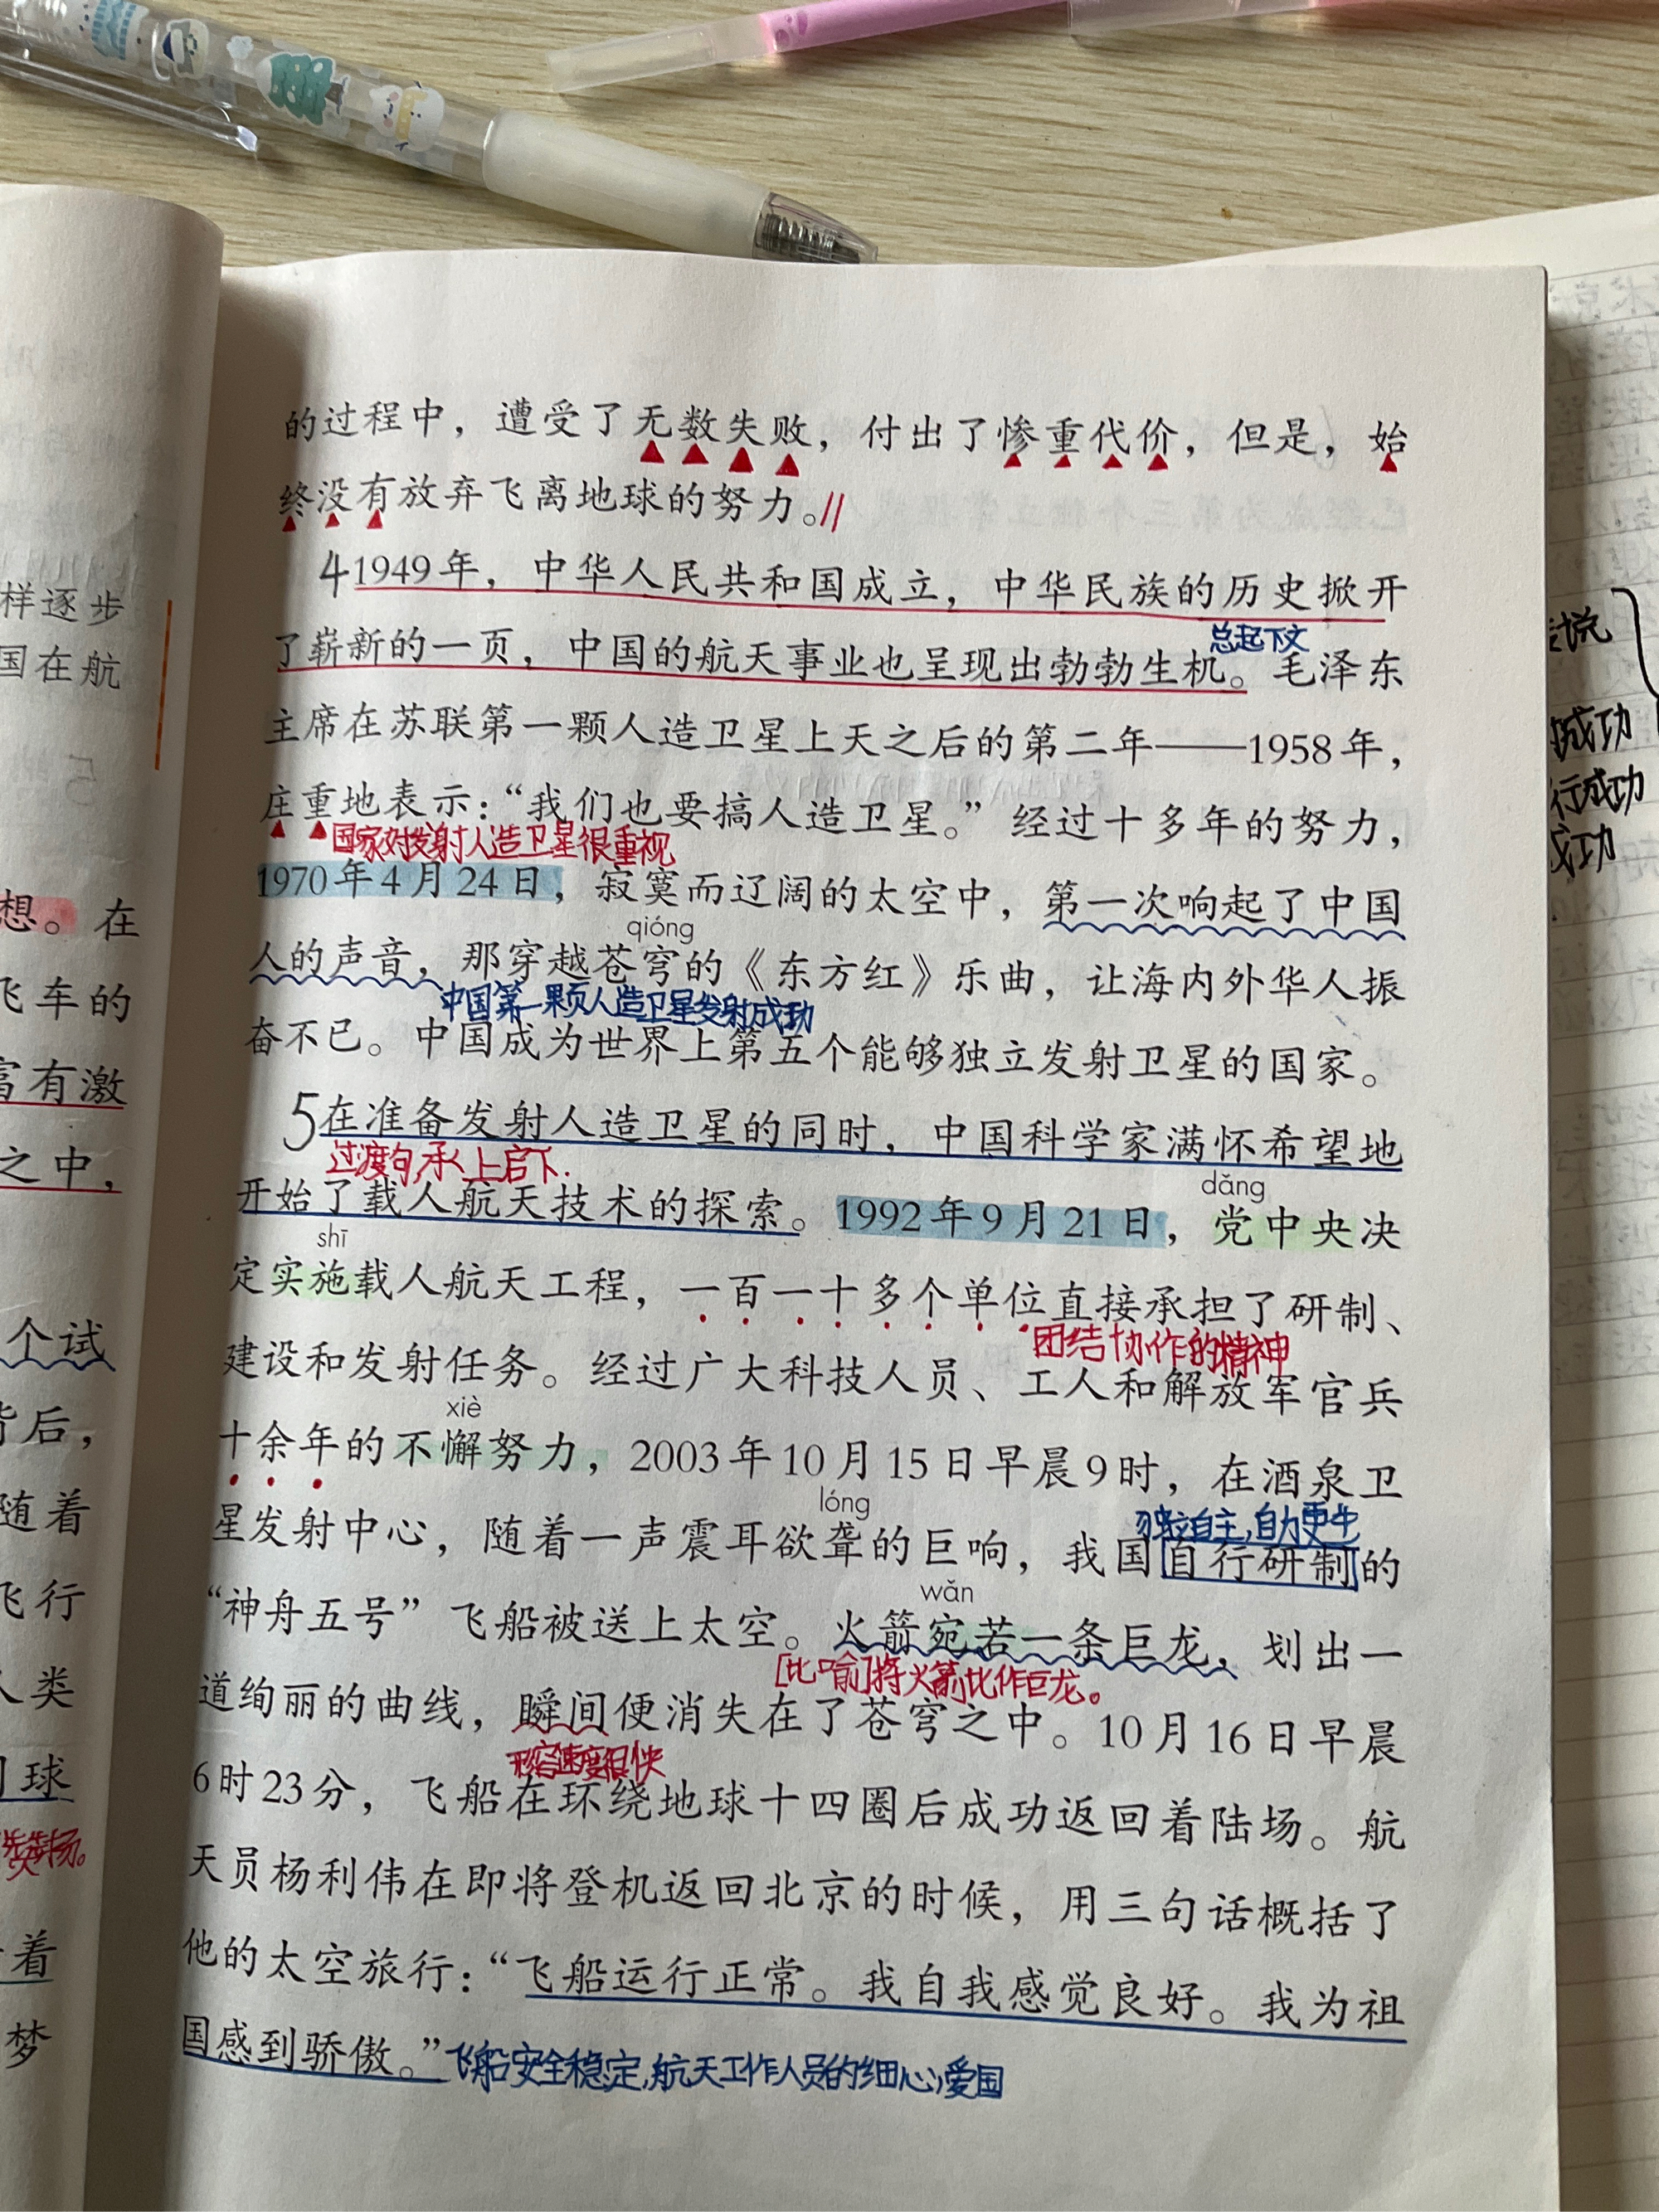 的过程中，遭受了无数失败，付出了惨重代价，但是，始
终没有放弃飞离地球的努力。//
4 1949年，中华人民共和国成立，中华民族的历史掀开
总起下文
了崭新的一页，中国的航天事业也呈现出勃勃生机。毛泽东
主席在苏联第一颗人造卫星上天之后的第二年——1958年，
庄重地表示：“我们也要搞人造卫星。”经过十多年的努力，
国家对发射人造卫星很重视
1970年4月24日，寂寞而辽阔的太空中，第一次响起了中国
qióng
人的声音，那穿越苍穹的《东方红》乐曲，让海内外华人振
中国第一颗人造卫星发射成功
奋不已。中国成为世界上第五个能够独立发射卫星的国家。
5 在准备发射人造卫星的同时，中国科学家满怀希望地
过渡句,承上启下.
dǎng
开始了载人航天技术的探索。1992年9月21日，党中央决
shī
定实施载人航天工程，一百一十多个单位直接承担了研制、
团结协作的精神
建设和发射任务。经过广大科技人员、工人和解放军官兵
xiè
十余年的不懈努力，2003年10月15日早晨9时，在酒泉卫
lóng
独立自主,自力更生
星发射中心，随着一声震耳欲聋的巨响，我国自行研制的
wǎn
“神舟五号”飞船被送上太空。火箭宛若一条巨龙，划出一
[比喻]将火箭比作巨龙。
道绚丽的曲线，瞬间便消失在了苍穹之中。10月16日早晨
形容速度很快
6时23分，飞船在环绕地球十四圈后成功返回着陆场。航
天员杨利伟在即将登机返回北京的时候，用三句话概括了
他的太空旅行：“飞船运行正常。我自我感觉良好。我为祖
国感到骄傲。”飞船安全稳定,航天工作人员的细心,爱国
样逐步
国在航
想。在
飞车的
富有激
之中，
个试
背后，
随着
飞行
人类
球
扬。
着
梦
成功
行成功
成功